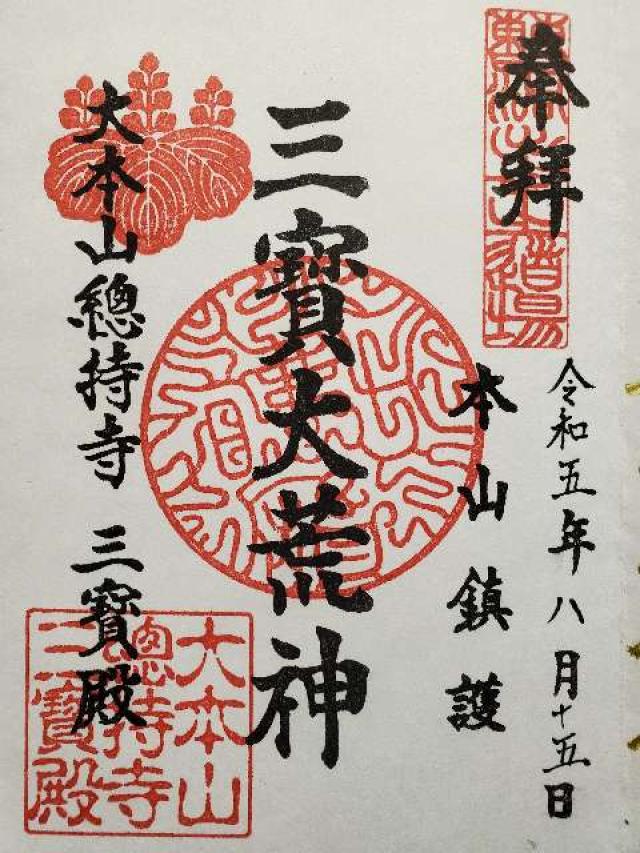 奉拝
令和五年八月十五日
本山鎮護
三寶大荒神
大本山總持寺 三寶殿
大本山
總持寺
三寶殿